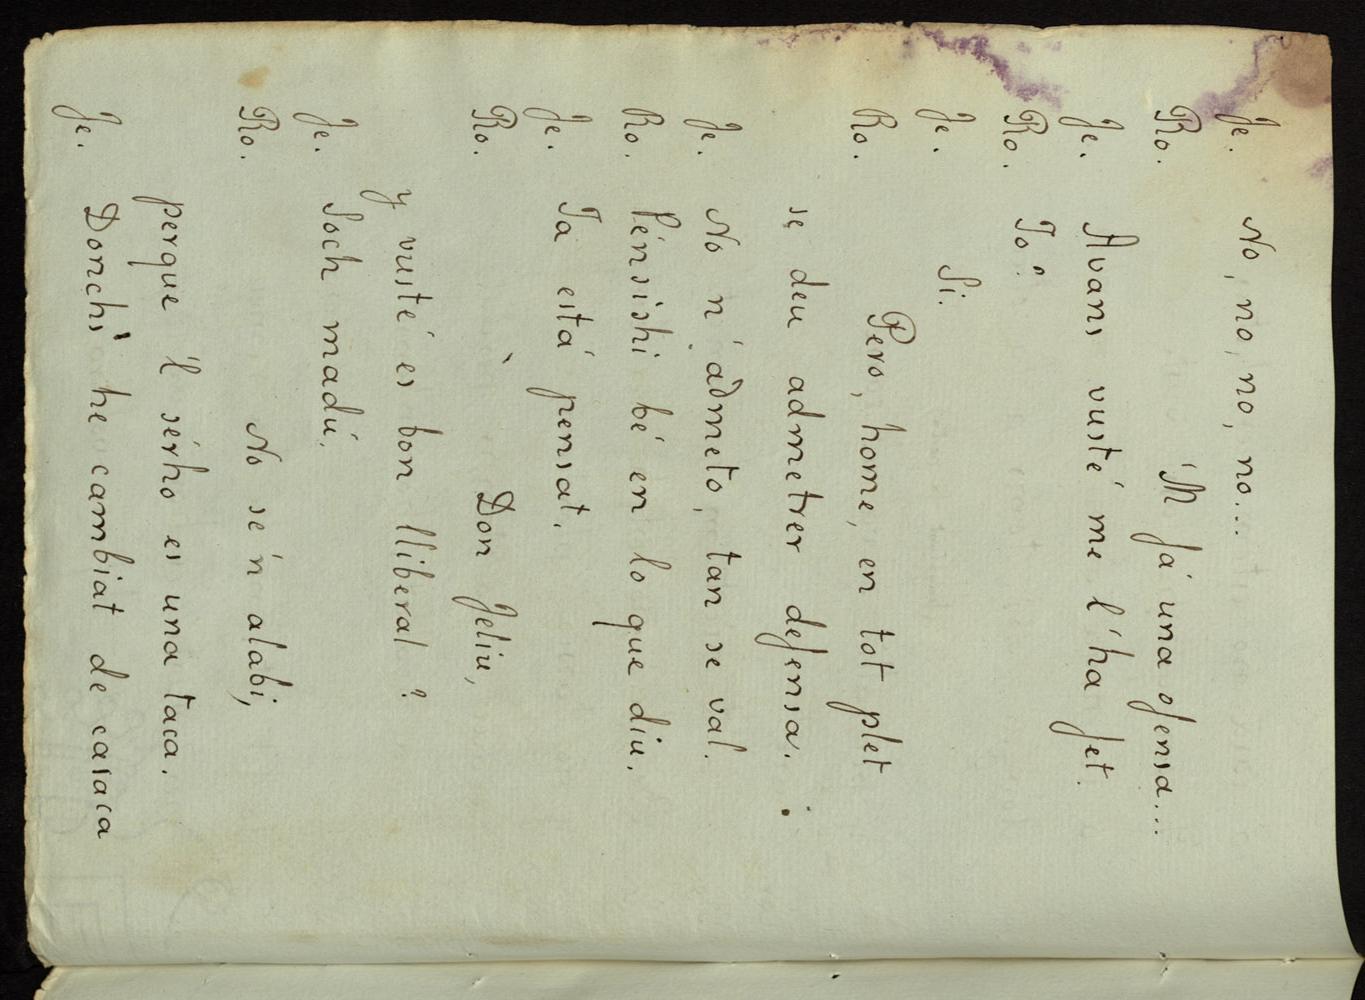 Je. No, no, no, no...
Ro. 'M fá una ofensa...
Je. Avans vusté me l'ha fet.
Ro. Jo?
Je. Si.
Ro. Pero, home, en tot plet
se deu admetrer defensa.
Je. No n' admeto, tan se val.
Ro. Pénsishi bé en lo que diu.
Je. Ja está pensat.
Ro. Don Jeliu,
y vusté es bon lliberal?
Je. Soch madú.
Ro. No se'n alabi,
perque 'l sérho es una taca.
Je. Donchs he cambiat de casaca